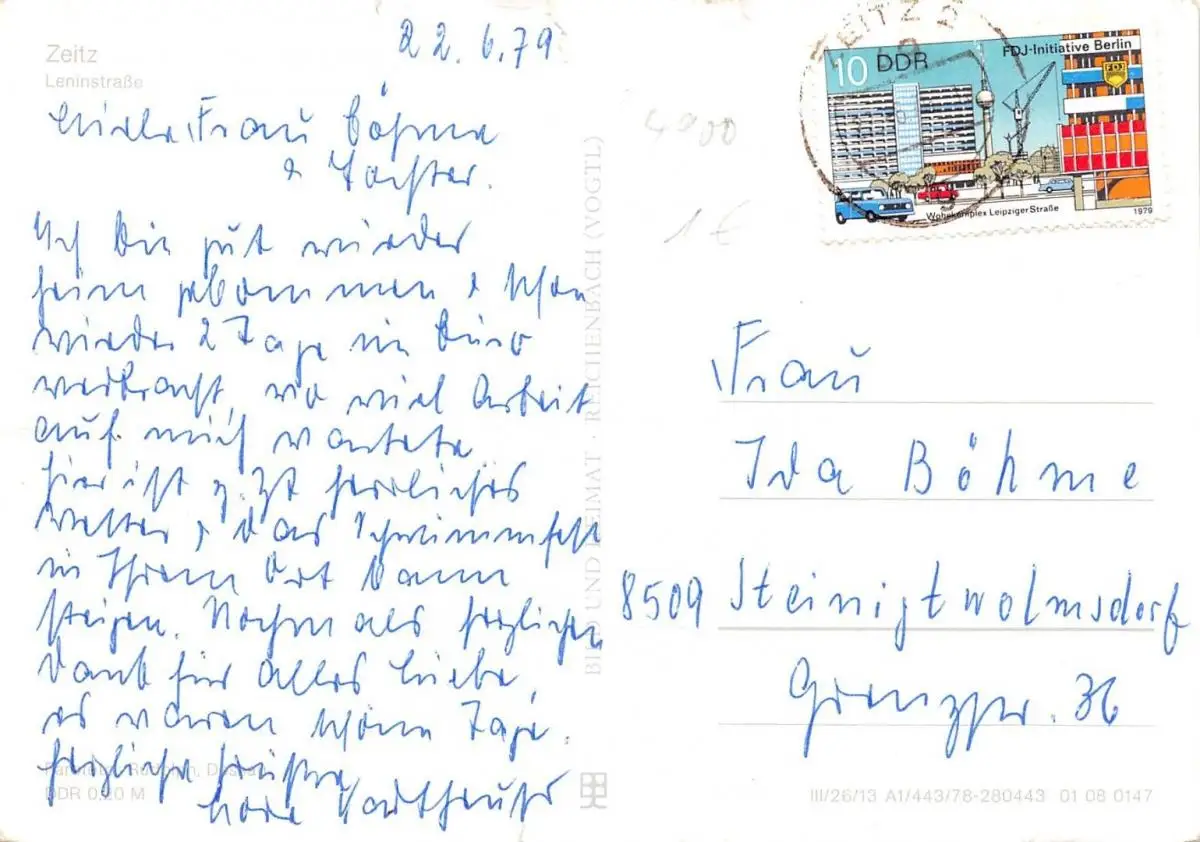 Zeitz
Leninstraße
22.6.79
Liebe Frau Böhme
& Tochter.
Ich bin gut wieder
heim gekommen & schon
wieder 2 Tage im Büro
verbracht, wo viel Arbeit
auf mich wartete
hier ist z. Zt herrliches
Wetter, das Schwimmfest
in Ihrem Ort kann
steigen. Nochmals herzlichen
Dank für alles Liebe,
es waren schöne Tage.
herzliche Grüße
DDR 0,20 M
BILD UND HEIMAT · REICHENBACH (VOGTL)
4900
1€
ZEITZ 2
10 DDR
FDJ-Initiative Berlin
FDJ
Wohnkomplex Leipziger Straße
1979
Frau
Ida Böhme
8509 Steinigtwolmsdorf
Grenzstr. 36
III/26/13 A1/443/78-280443 01 08 0147